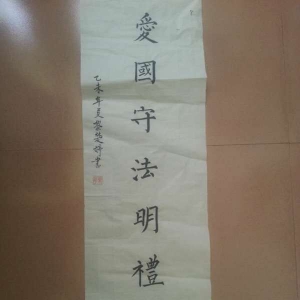 愛國守法明禮
乙未年夏
書